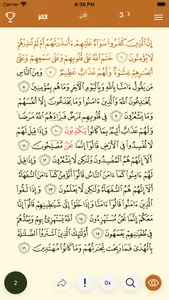 Carrier 8:36 PM
الآن 3
إِنَّ ٱلَّذِينَ كَفَرُوا۟ سَوَآءٌ عَلَيْهِمْ ءَأَنذَرْتَهُمْ أَمْ لَمْ تُنذِرْهُمْ
لَا يُؤْمِنُونَ ۝٦ خَتَمَ ٱللَّهُ عَلَىٰ قُلُوبِهِمْ وَعَلَىٰ سَمْعِهِمْ وَعَلَىٰٓ
أَبْصَٰرِهِمْ غِشَٰوَةٌ وَلَهُمْ عَذَابٌ عَظِيمٌ ۝٧ وَمِنَ ٱلنَّاسِ
مَن يَقُولُ ءَامَنَّا بِٱللَّهِ وَبِٱلْيَوْمِ ٱلْءَاخِرِ وَمَا هُم بِمُؤْمِنِينَ ۝٨
يُخَٰدِعُونَ ٱللَّهَ وَٱلَّذِينَ ءَامَنُوا۟ وَمَا يَخْدَعُونَ إِلَّآ أَنفُسَهُمْ
وَمَا يَشْعُرُونَ ۝٩ فِى قُلُوبِهِم مَّرَضٌ فَزَادَهُمُ ٱللَّهُ مَرَضًا
وَلَهُمْ عَذَابٌ أَلِيمٌۢ بِمَا كَانُوا۟ يَكْذِبُونَ ۝١٠ وَإِذَا قِيلَ لَهُمْ
لَا تُفْسِدُوا۟ فِى ٱلْأَرْضِ قَالُوٓا۟ إِنَّمَا نَحْنُ مُصْلِحُونَ ۝١١
أَلَآ إِنَّهُمْ هُمُ ٱلْمُفْسِدُونَ وَلَٰكِن لَّا يَشْعُرُونَ ۝١٢ وَإِذَا قِيلَ
لَهُمْ ءَامِنُوا۟ كَمَآ ءَامَنَ ٱلنَّاسُ قَالُوٓا۟ أَنُؤْمِنُ كَمَآ ءَامَنَ ٱلسُّفَهَآءُ
أَلَآ إِنَّهُمْ هُمُ ٱلسُّفَهَآءُ وَلَٰكِن لَّا يَعْلَمُونَ ۝١٣ وَإِذَا لَقُوا۟
ٱلَّذِينَ ءَامَنُوا۟ قَالُوٓا۟ ءَامَنَّا وَإِذَا خَلَوْا۟ إِلَىٰ شَيَٰطِينِهِمْ قَالُوٓا۟ إِنَّا
مَعَكُمْ إِنَّمَا نَحْنُ مُسْتَهْزِءُونَ ۝١٤ ٱللَّهُ يَسْتَهْزِئُ بِهِمْ وَيَمُدُّهُمْ
فِى طُغْيَٰنِهِمْ يَعْمَهُونَ ۝١٥ أُو۟لَٰٓئِكَ ٱلَّذِينَ ٱشْتَرَوُا۟ ٱلضَّلَٰلَةَ
بِٱلْهُدَىٰ فَمَا رَبِحَت تِّجَٰرَتُهُمْ وَمَا كَانُوا۟ مُهْتَدِينَ ۝١٦
2 ! 0x